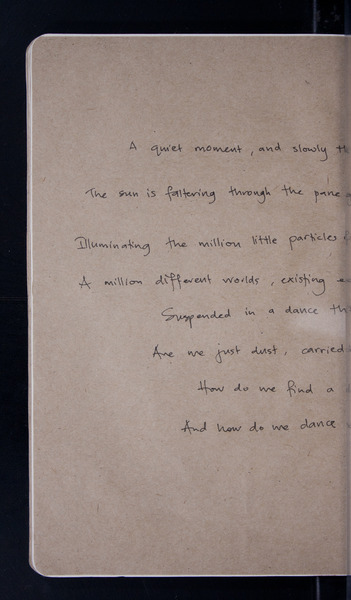 A quiet moment, and slowly
The sun is faltering through the pane
Illuminating the million little particles
A million different worlds, existing
Suspended in a dance
Are we just dust, carried
How do we find a
And how do we dance